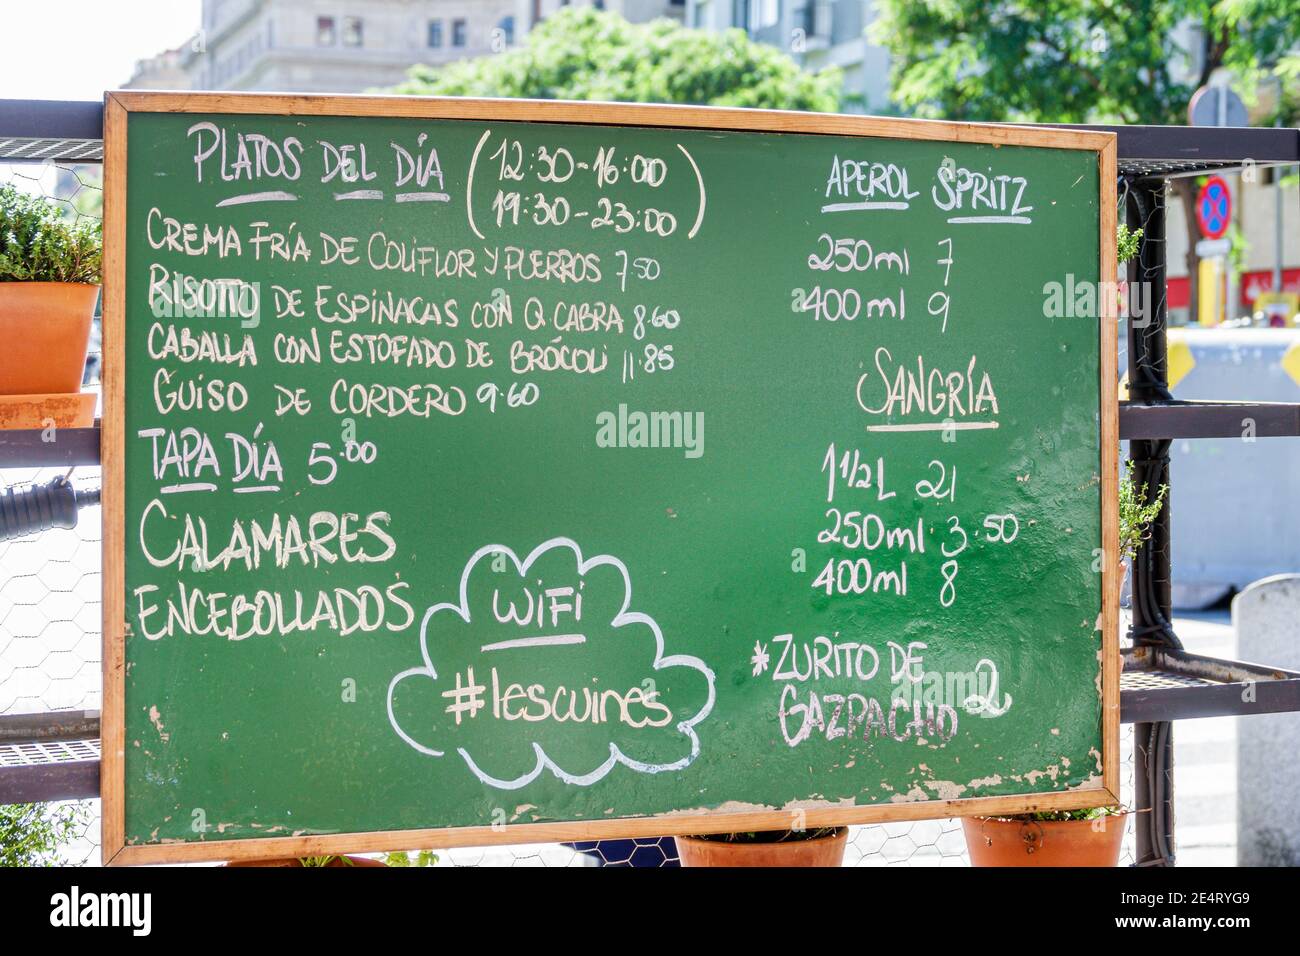 PLATOS DEL DÍA (12:30-16:00
19:30-23:00)
CREMA FRÍA DE COLIFLOR Y PUERROS 7,50
RISOTTO DE ESPINACAS CON Q. CABRA 8.60
CABALLA CON ESTOFADO DE BRÓCOLI 11.85
GUISO DE CORDERO 9.60
TAPA DÍA 5.00
CALAMARES
ENCEBOLLADOS
WiFi
#lescuines
APEROL SPRITZ
250ml 7
400ml 9
SANGRÍA
1 1/2 L 21
250ml 3.50
400ml 8
*ZURITO DE
GAZPACHO 2
alamy
alamy
Image ID: 2E4RYG9
www.alamy.com